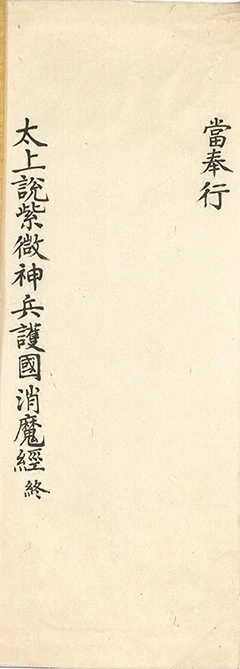 當奉行
太上說紫微神兵護國消魔經終